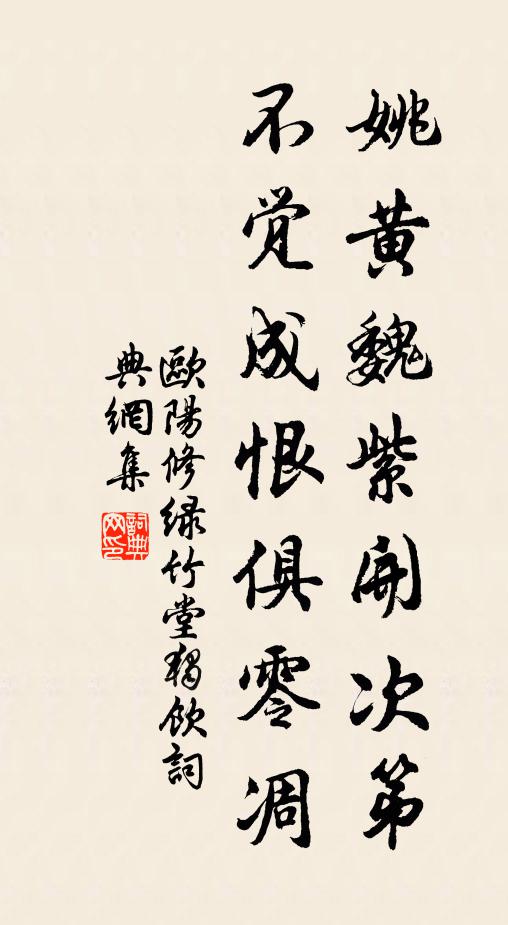 姚黄魏紫開次第
不覚成恨俱零凋
歐陽修緑竹堂獨飲詞
典網集
詞典
网印